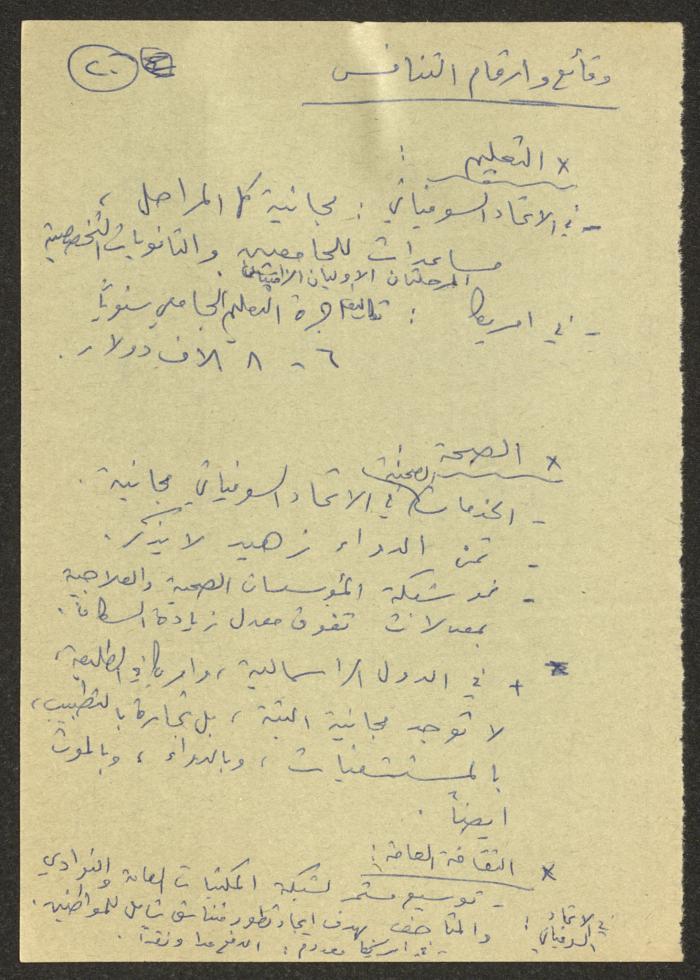 ٢٠
وقائع وارقام التنافس
× التعليم :
- في الاتحاد السوفياتي : مجانية كل المراحل ،
مساعدات للجامعيين والثانويات التخصصية
المرحلتان الاوليان الزاميتان
- في امريكا : تكاليف اجرة التعليم الجامعي سنوياً
٦ - ٨ الاف دولار .
× الصحة
- الخدمات الصحية في الاتحاد السوفياتي مجانية .
- ثمن الدواء زهيد لا يذكر .
- نمو شبكة المؤسسات الصحية والعلاجية
بمعدلات تفوق معدل زيادة السكان .
+ في الدول الراسمالية ، وامريكا في الطليعة ،
لا توجد مجانية البتة ، بل تجارة بالتطبيب ،
بالمستشفيات ، وبالدواء ، وبالموت
ايضاً .
× الثقافة العامة :
في الاتحاد السوفياتي : - توسيع مستمر لشبكة المكتبات العامة والنوادي
والمتاحف بهدف ايجاد تطور متناسق شامل للمواطنين .
- في امريكا معدوم : الدفع عدا ونقداً .